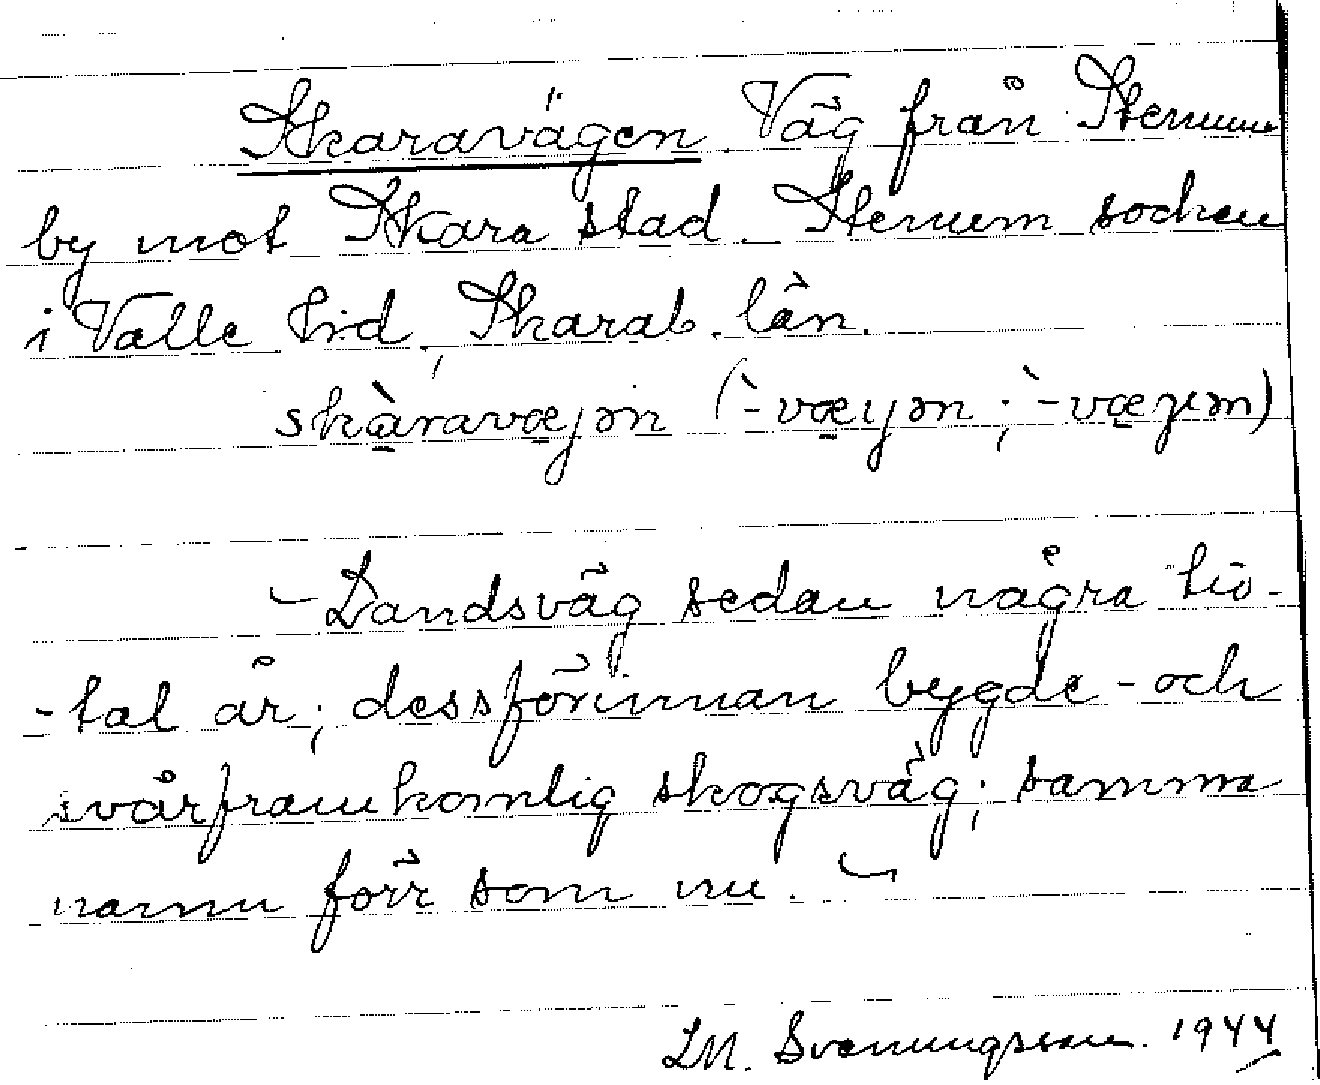 Skaravägen. Väg från Stenum
by mot Skara stad. Stenum socken
i Valle hd, Skarab. län.
skàravæjən (`-væyən; `-væɡɪən)
– Landsväg sedan några tio-
-tal år; dessförinnan bygde- och
svårframkomlig skogsväg; samma
namn förr som nu. –
M. Svenungsson. 1944